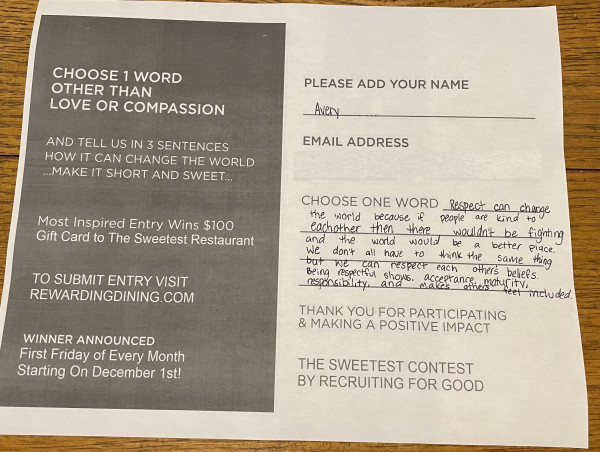 CHOOSE 1 WORD
OTHER THAN
LOVE OR COMPASSION
AND TELL US IN 3 SENTENCES
HOW IT CAN CHANGE THE WORLD
...MAKE IT SHORT AND SWEET...
Most Inspired Entry Wins $100
Gift Card to The Sweetest Restaurant
TO SUBMIT ENTRY VISIT
REWARDINGDINING.COM
WINNER ANNOUNCED
First Friday of Every Month
Starting On December 1st!
PLEASE ADD YOUR NAME
Avery
EMAIL ADDRESS
CHOOSE ONE WORD Respect can change
the world because if people are kind to
eachother then there wouldn't be fighting
and the world would be a better place.
We don't all have to think the same thing
but we can respect each others beliefs.
Being respectful shows, acceptance, maturity,
responsibility, and makes others feel included.
THANK YOU FOR PARTICIPATING
& MAKING A POSITIVE IMPACT
THE SWEETEST CONTEST
BY RECRUITING FOR GOOD